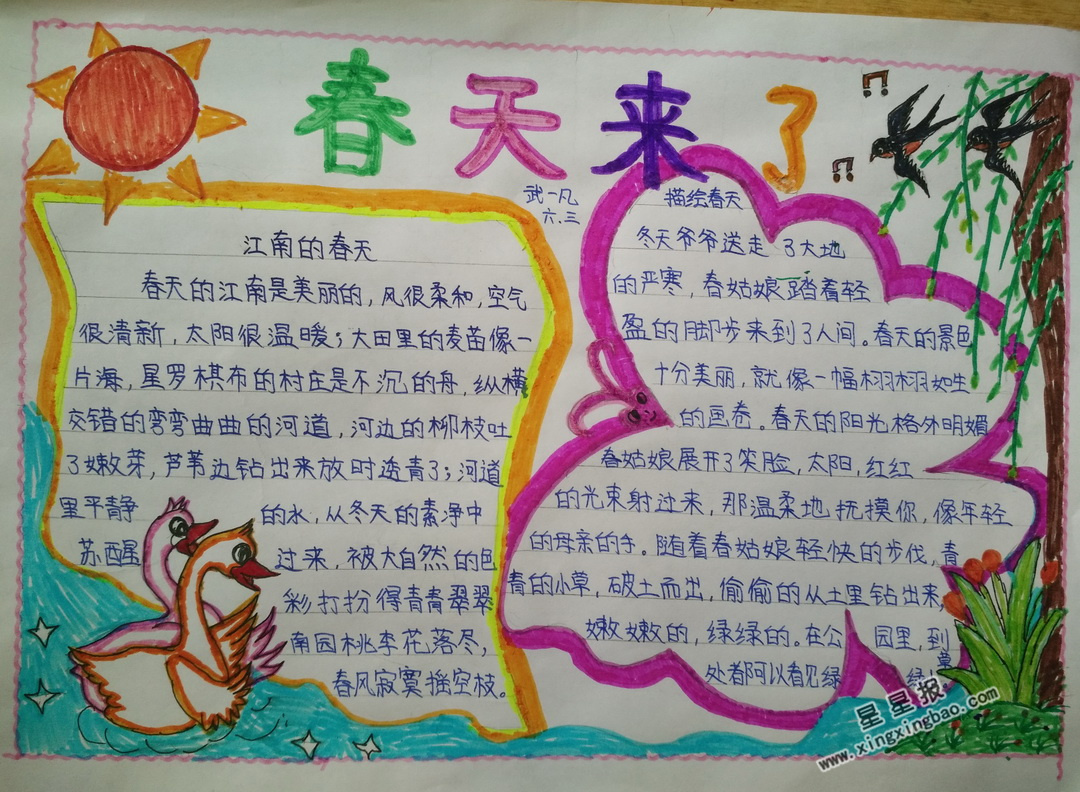 春天来了
武一凡
六.三
江南的春天
春天的江南是美丽的，风很柔和，空气
很清新，太阳很温暖；大田里的麦苗像一
片海，星罗棋布的村庄是不沉的舟，纵横
交错的弯弯曲曲的河道，河边的柳枝吐
了嫩芽，芦苇边钻出来放时迭青了；河道
里平静的水，从冬天的素净中
苏醒过来，被大自然的色
彩打扮得青青翠翠
南园桃李花落尽，
春风寂寞摇空枝。
描绘春天
冬天爷爷送走了大地
的严寒，春姑娘踏着轻
盈的脚步来到了人间。春天的景色
十分美丽，就像一幅栩栩如生
的画卷。春天的阳光格外明媚
春姑娘展开了笑脸，太阳，红红
的光束射过来，那温柔地抚摸你，像年轻
的母亲的手。随着春姑娘轻快的步伐，青
青的小草，破土而出，偷偷的从土里钻出来，
嫩嫩的，绿绿的。在公园里，到
处都可以看见绿绿草
星星报
www.xingxingbao.com